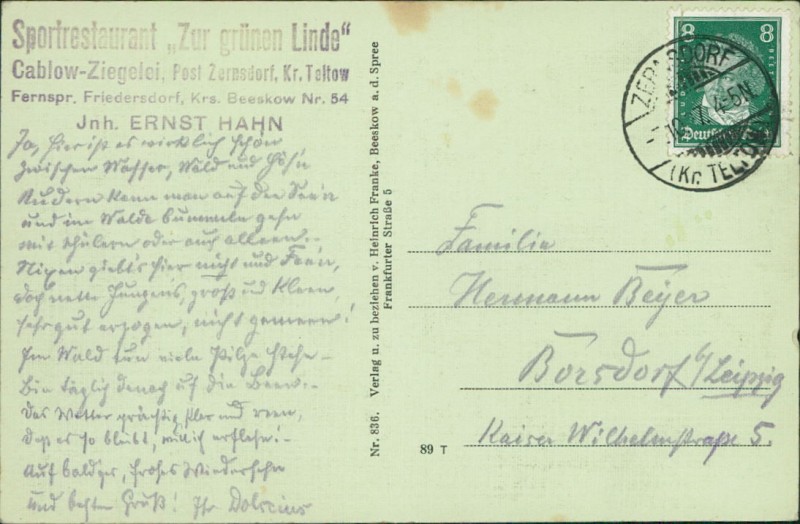 Sportrestaurant „Zur grünen Linde"
Cablow-Ziegelei, Post Zernsdorf, Kr. Teltow
Fernspr. Friedersdorf, Krs. Beeskow Nr. 54
Jnh. ERNST HAHN
Ja, hier ist es wirklich schön
zwischen Wasser, Wald und Höh'n
Rudern kann man auf den Seen
und im Walde bummeln gehn
mit Schülern oder auch alleen.-
Nixen giebt's hier nicht und Feen,
doch nette Jungens, groß und kleen,
sehr gut erzogen, nicht gemeen!
Im Wald tun viele Pilze stehn-
Bin täglich danach auf die Been.-
Das Wetter prächtig, klar und reen,
Daß es so bleibt, will ich erflehn!-
Auf baldges, frohes Wiedersehn
und besten Gruß! Ihr
Nr. 836. Verlag u. zu beziehen v. Heinrich Franke, Beeskow a. d. Spree
Frankfurter Straße 5
8 8
Deutsches
ZERNSDORF
(Kr. TELTOW)
Familie
Hermann Beyer
Borsdorf b/Leipzig
Kaiser Wilhelmstraße 5.
89 T